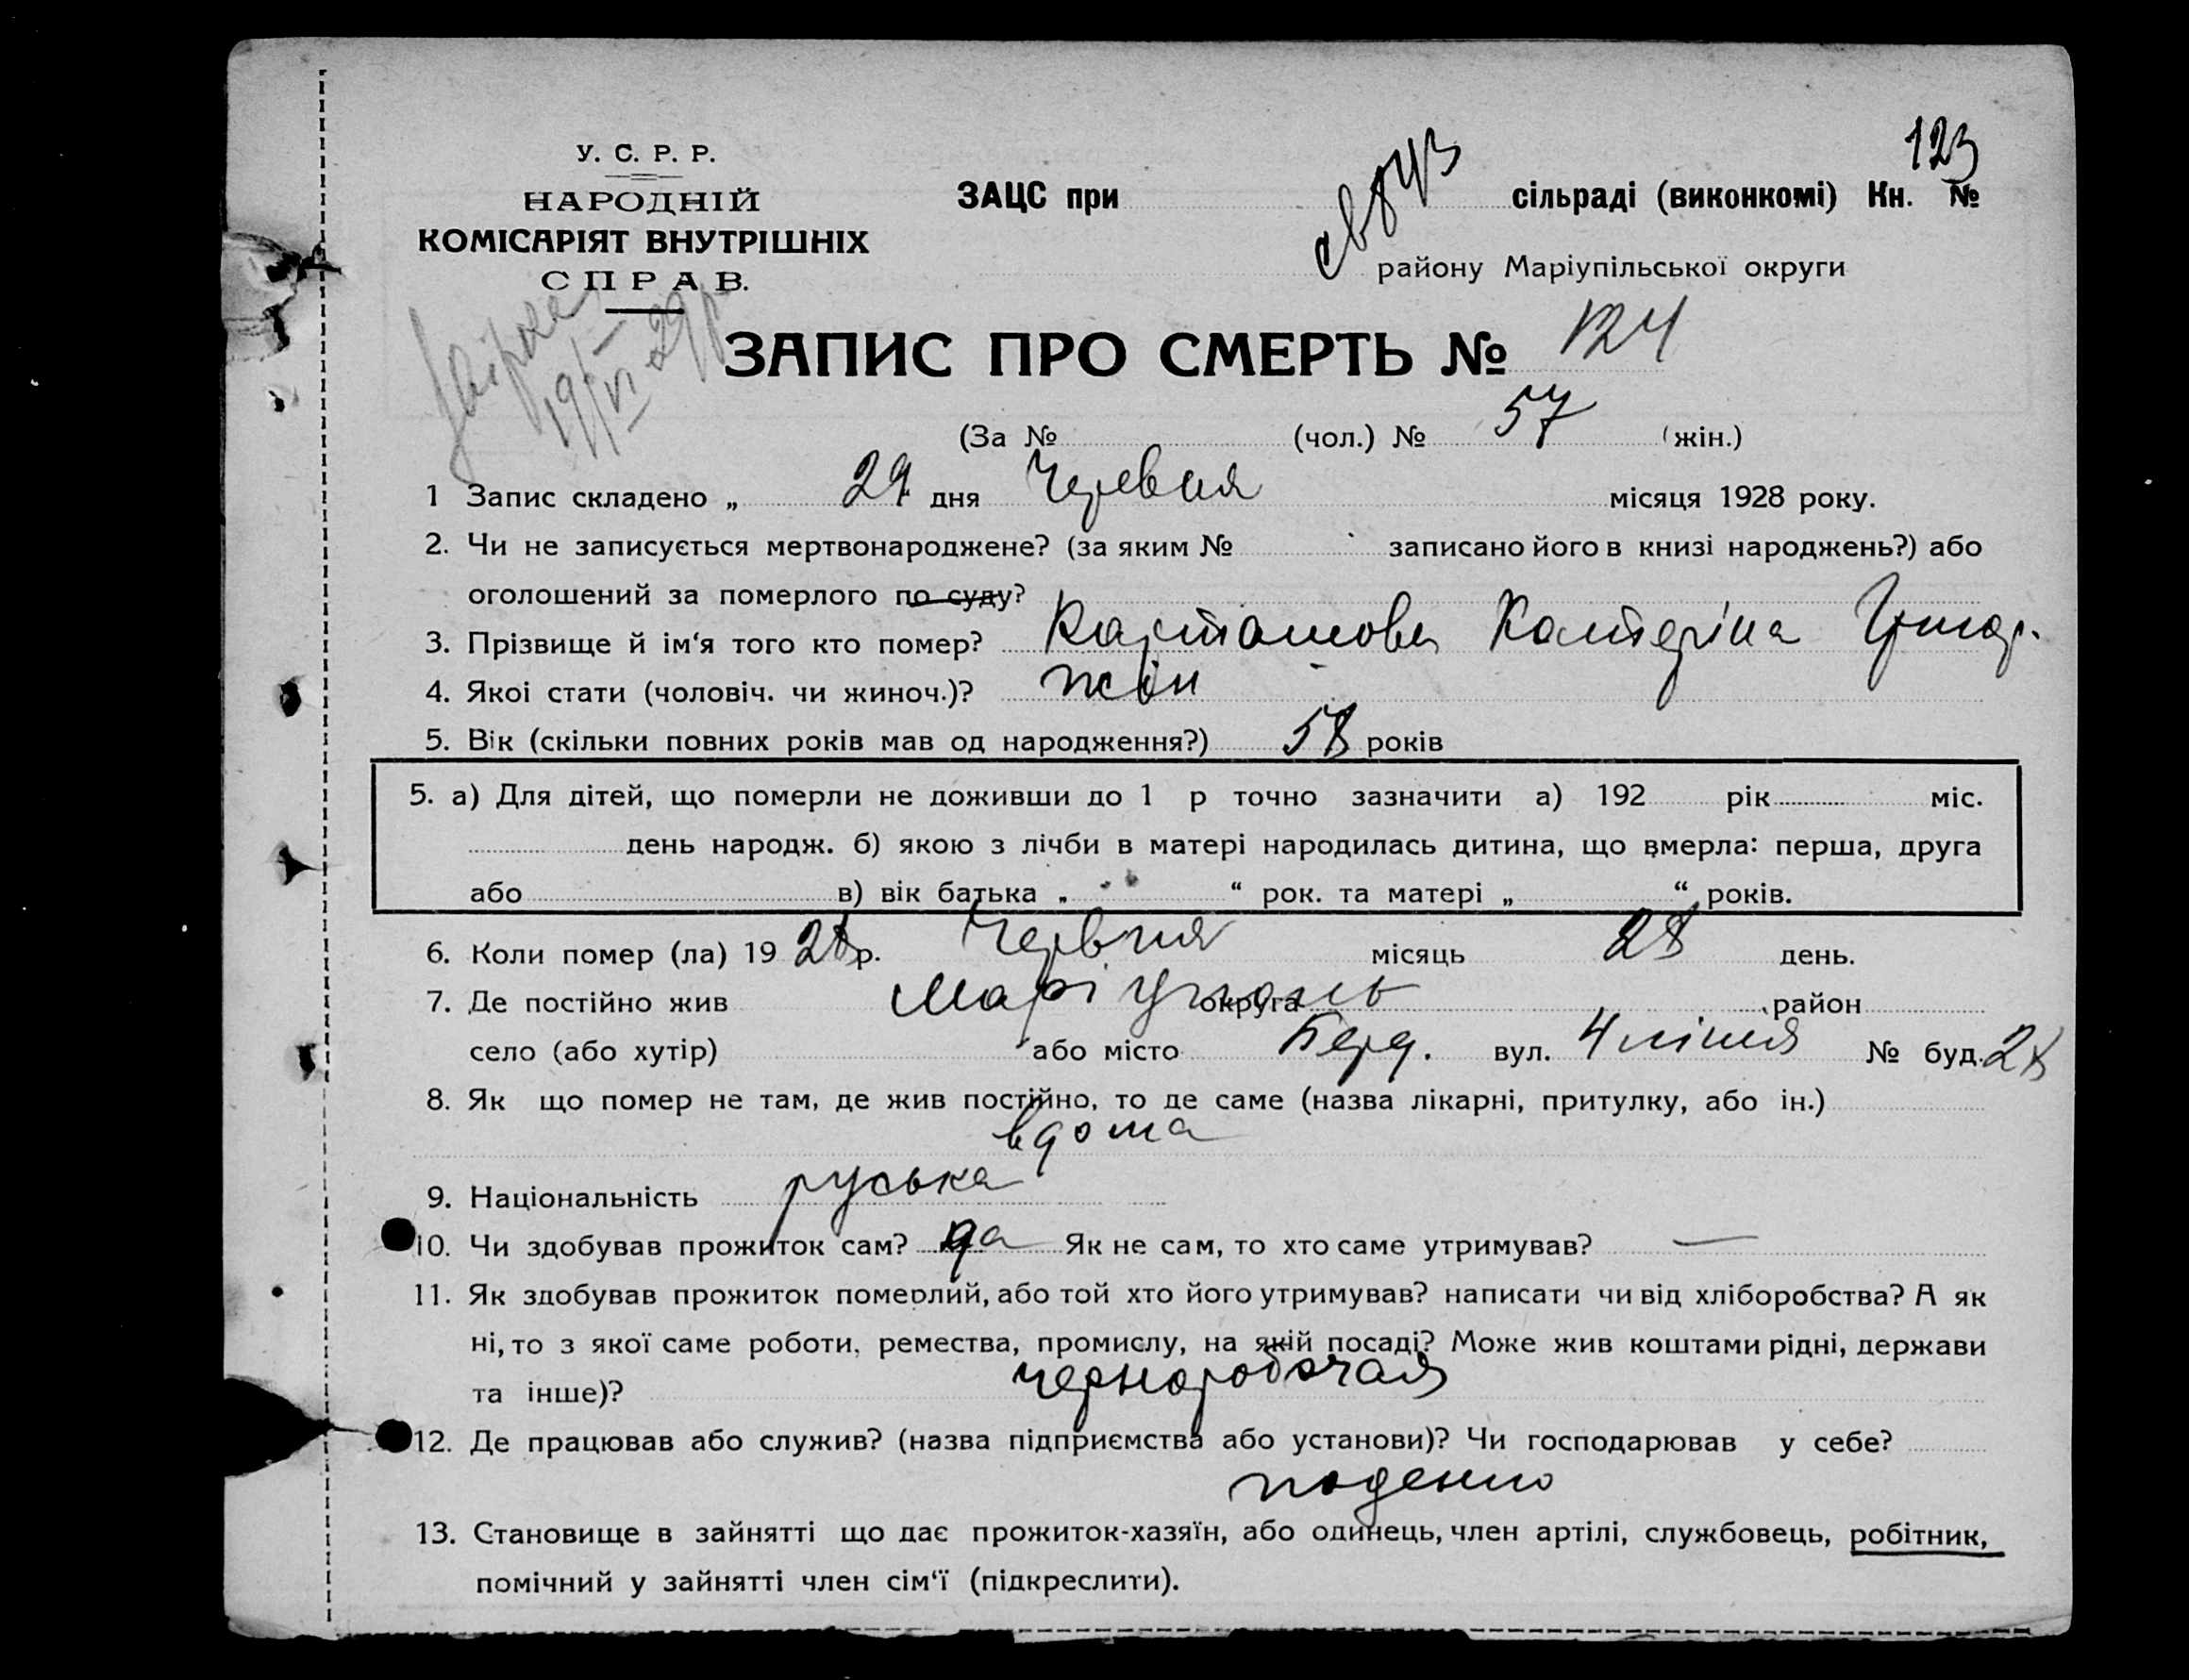 123
У. С. Р. Р.
НАРОДНІЙ
КОМІСАРІЯТ ВНУТРІШНІХ
СПРАВ.
ЗАЦС при сільраді (виконкомі) Кн. №
району Маріупільської округи
19/VI-29р
ЗАПИС ПРО СМЕРТЬ № 124
(За № (чол.) № 57 (жін.)
1 Запис складено „ 29 дня Червня місяця 1928 року.
2. Чи не записується мертвонароджене? (за яким № записано його в книзі народжень?) або
оголошений за померлого по суду?
3. Прізвище й ім‘я того кто помер? Карташова Катеріна Григор.
4. Якоі стати (чоловіч. чи жиноч.)? жін
5. Вік (скільки повних років мав од народження?) 58 років
5. а) Для дітей, що померли не доживши до 1 р точно зазначити а) 192 рік міс.
день народж. б) якою з лічби в матері народилась дитина, що вмерла: перша, друга
або в) вік батька „ “ рок. та матері „ “ років.
6. Коли помер (ла) 1928 р. Червня місяць 28 день.
7. Де постійно жив Маріуполь округа район
село (або хутір) або місто Берд. вул. 4 лінія № буд. 28
8. Як що помер не там, де жив постійно, то де саме (назва лікарні, притулку, або ін.)
вдома
9. Національність руська
10. Чи здобував прожиток сам? да Як не сам, то хто саме утримував? —
11. Як здобував прожиток померлий, або той хто його утримував? написати чи від хліборобства? А як
ні, то з якої саме роботи, ремества, промислу, на якій посаді? Може жив коштами рідні, держави
та інше)? чернорабочая
12. Де працював або служив? (назва підприємства або установи)? Чи господарював у себе?
поденно
13. Становище в зайнятті що дає прожиток-хазяїн, або одинець, член артілі, службовець, робітник,
помічний у зайнятті член сім‘ї (підкреслити).